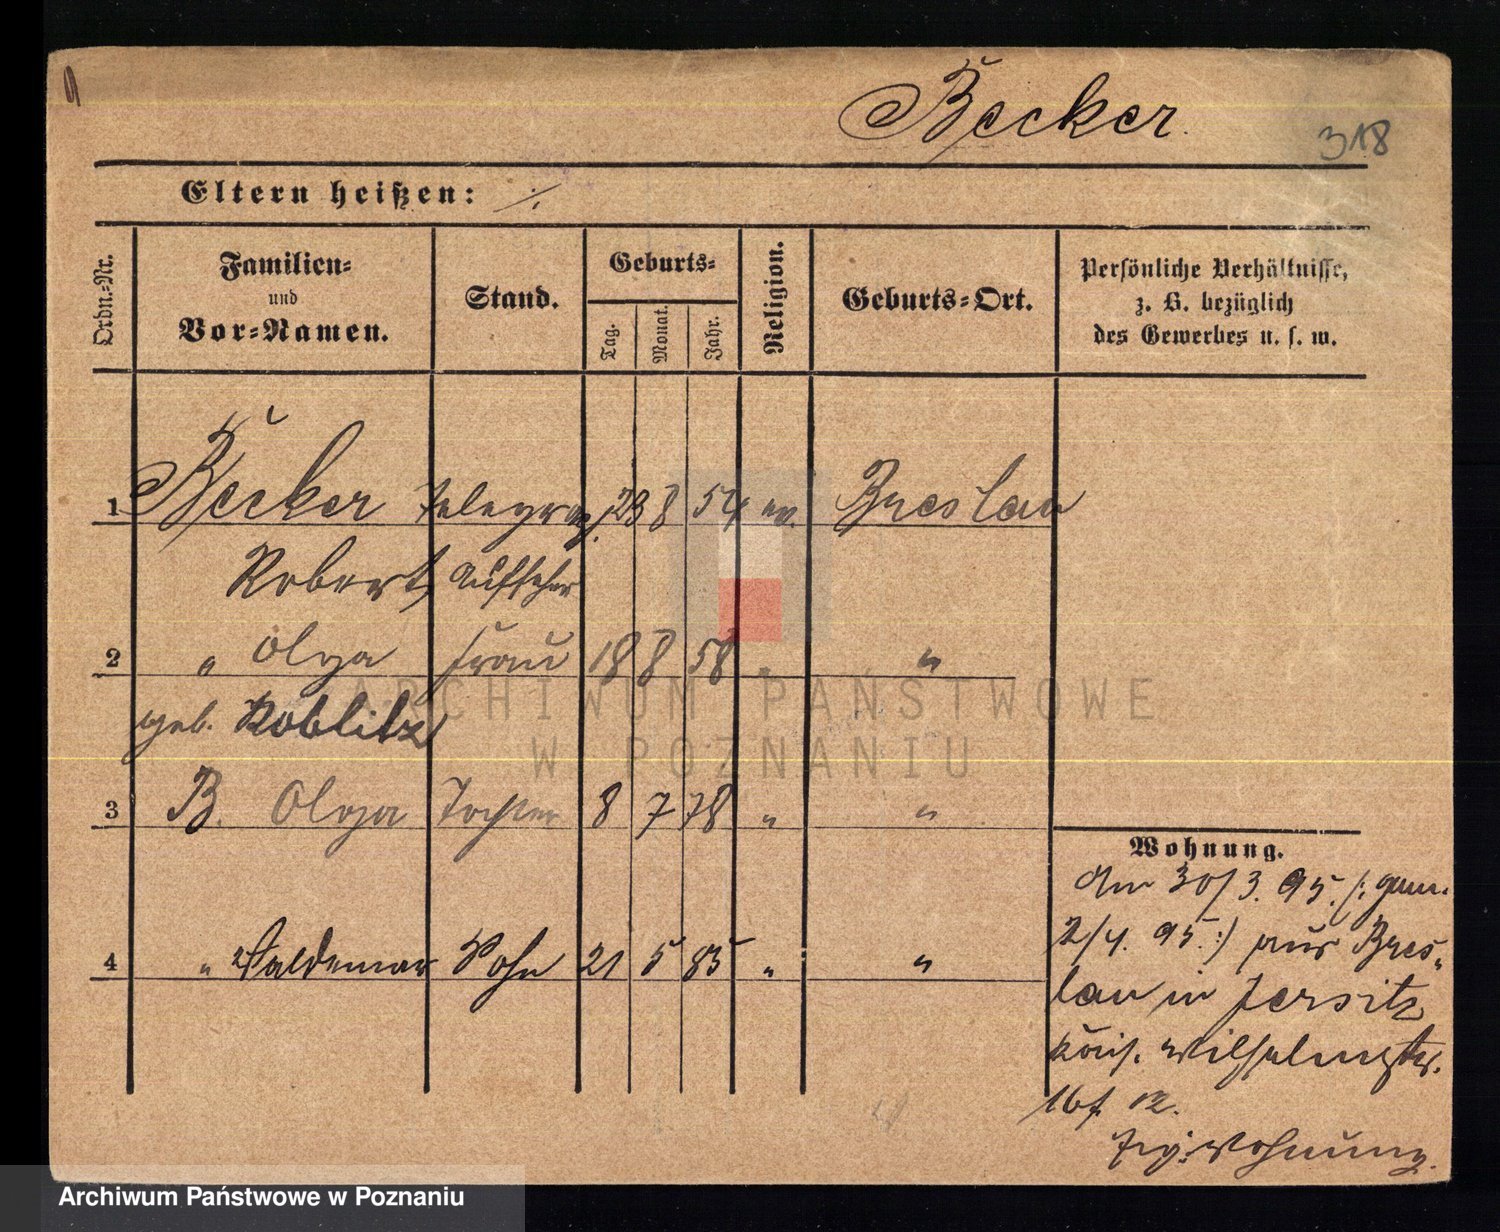 Becker
318
Eltern heißen: ./.
Ordn.-Nr.
Familien-
und
Vor-Namen.
Stand.
Geburts-
Tag.
Monat.
Jahr.
Religion.
Geburts-Ort.
Persönliche Verhältnisse,
z. B. bezüglich
des Gewerbes u. s. w.
1 Becker Telegrap. 23 8 54 ev. Breslau
Robert Aufseher
2 " Olga Frau 18 8 58 " "
geb. Koblitz
3 B. Olga Tochter 8 7 78 " "
4 " Waldemar Sohn 21 5 85 " "
Wohnung.
Am 30/3. 95. /: gem.
2/4. 95. :/ aus Bres-
lau in Jersitz
Kais. Wilhelmstr.
16
Wohnung.
ARCHIWUM PAŃSTWOWE
W POZNANIU
Archiwum Państwowe w Poznaniu